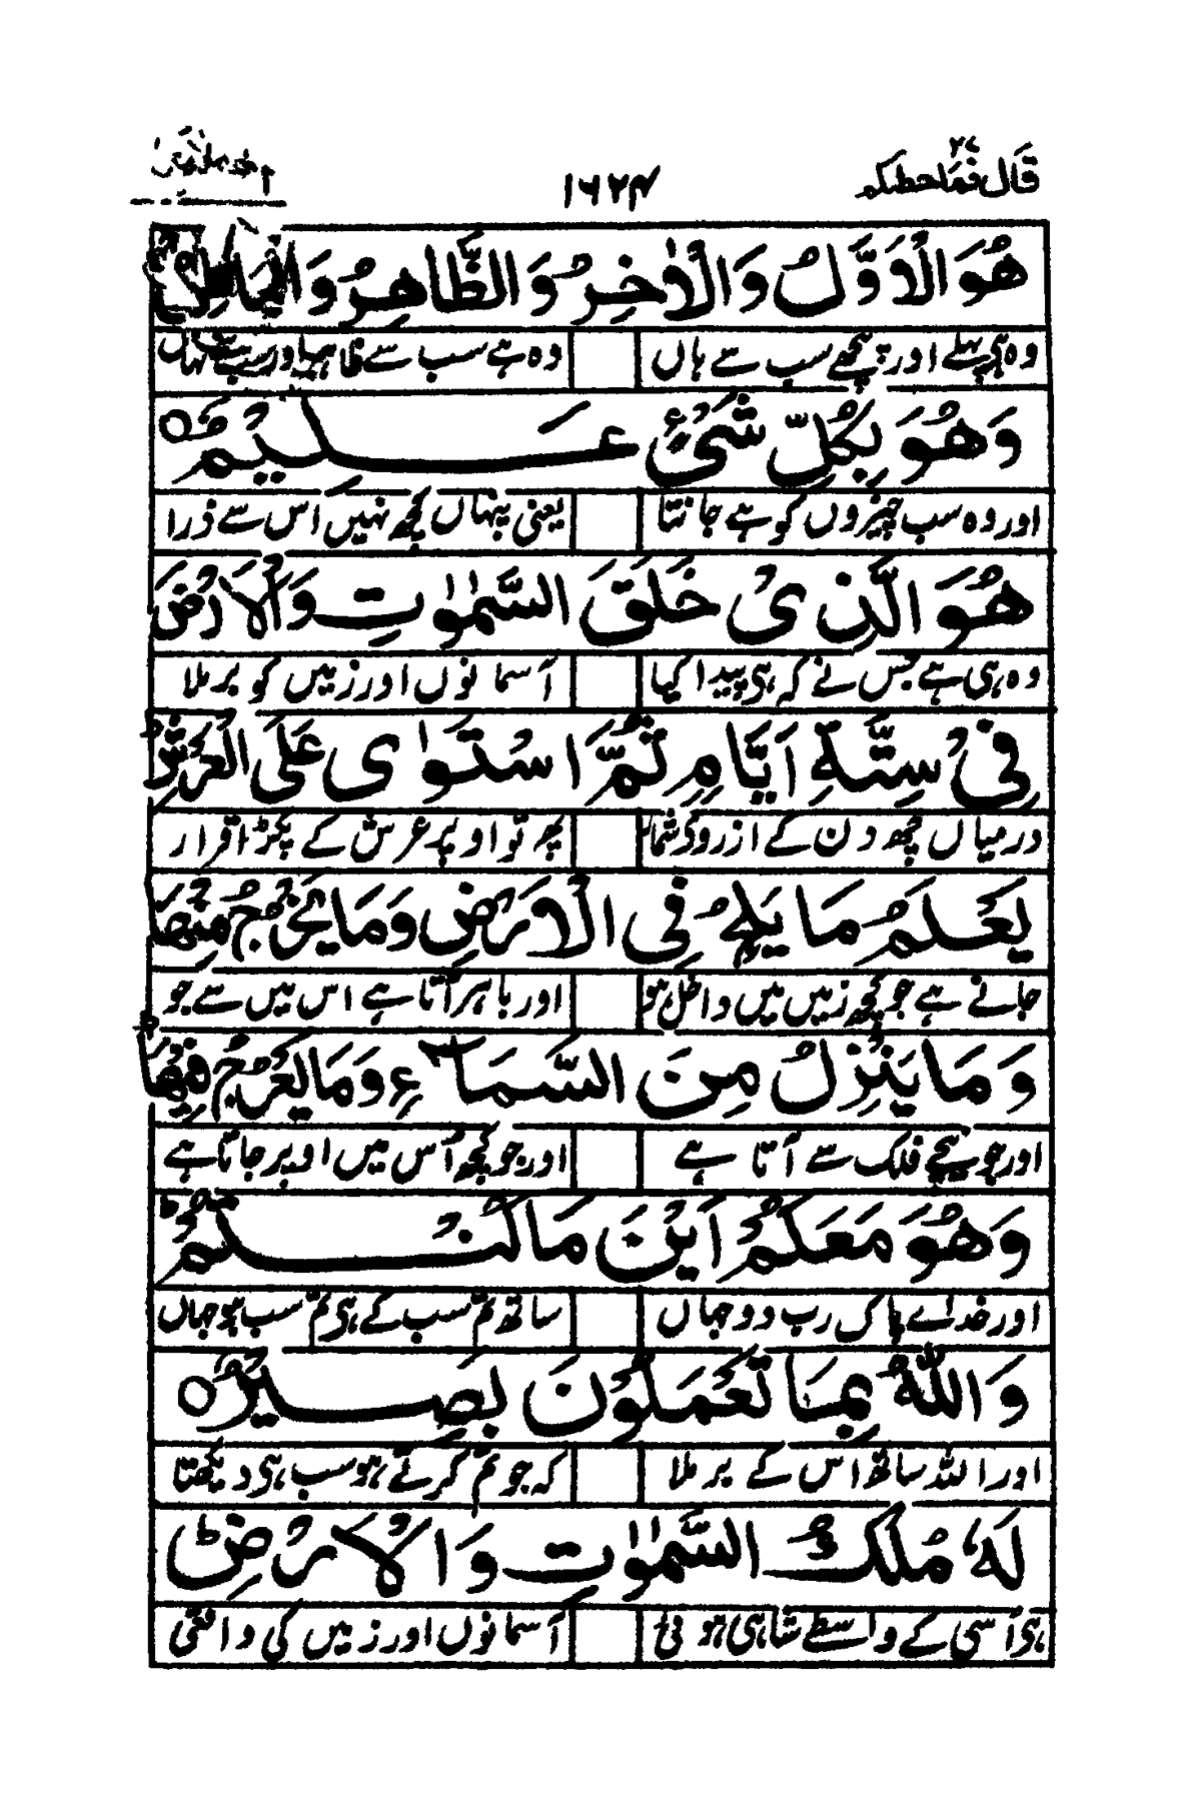 قال فما خطبكم ٢٧
١٦٢٤
هُوَ الْاَوَّلُ وَالْاٰخِرُ وَالظَّاهِرُ وَالْبَاطِنُ
وہ ہی پہلے اور پیچھے سب سے ہاں وہ ہے سب سے ظاہر اور ہے نہاں
وَهُوَ بِكُلِّ شَیْءٍ عَلِیْمٌ
اور وہ سب چیزوں کو ہے جانتا یعنی پنہاں کچھ نہیں اس سے ذرا
هُوَ الَّذِیْ خَلَقَ السَّمٰوٰتِ وَالْاَرْضَ
وہ ہی ہے جس نے کہ ہی پیدا کیا آسمانوں اور زمیں کو برملا
فِیْ سِتَّةِ اَیَّامٍ ثُمَّ اسْتَوٰی عَلَی الْعَرْشِ ط
درمیاں چھ دن کے از روئے شمار پھر تو اوپر عرش کے پکڑا قرار
یَعْلَمُ مَا یَلِجُ فِی الْاَرْضِ وَمَا یَخْرُجُ مِنْهَا
جانے ہے جو کچھ زمیں میں داخل ہو اور باہر آتا ہے اس میں سے جو
وَمَا یَنْزِلُ مِنَ السَّمَآءِ وَمَا یَعْرُجُ فِیْهَا ط
اور جو نیچے فلک سے آتا ہے اور جو کچھ اُس میں اوپر جاتا ہے
وَهُوَ مَعَكُمْ اَیْنَ مَا كُنْتُمْ ط
اور خدائے پاک رب دو جہاں ساتھ تم سب کے ہی تم سب ہو جہاں
وَاللّٰهُ بِمَا تَعْمَلُوْنَ بَصِیْرٌ
اور اللہ ساتھ اس کے برملا کہ جو تم کرتے ہو سب ہی دیکھتا
لَهٗ مُلْكُ السَّمٰوٰتِ وَالْاَرْضِ ط
ہی اُسی کے واسطے شاہی ہوئی آسمانوں اور زمیں کی واقعی